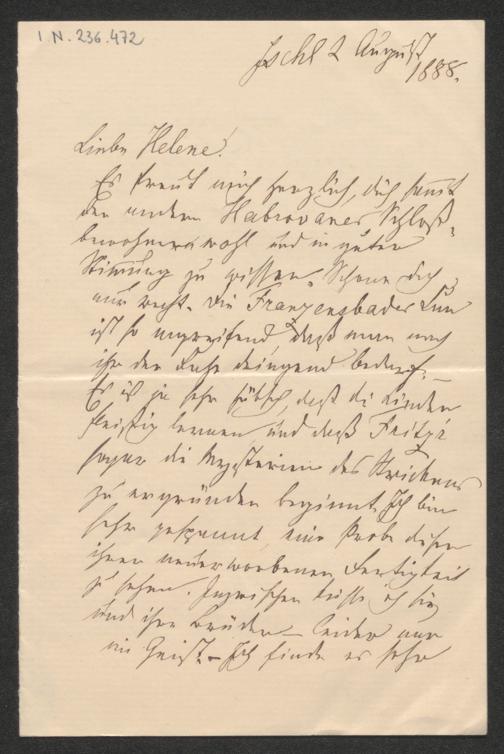 I.N. 236.472
Ischl 2 August
1888.
Liebe Helene!
Es freut mich herzlich, dich sammt
den andern Habrovaner Schloß-
bewohnern wohl und in guter
Stimmung zu wissen. Schone dich
nur recht. Die Franzensbader Cur
ist so angreifend, daß man nach
ihr der Ruhe dringend bedarf. –
Es ist ja sehr hübsch, daß die Kinder
fleißig lernen, und daß Fritzi
sogar die Mysterien des Strickens
zu ergründen beginnt. Ich bin
sehr gespannt, eine Probe dieser
ihrer neuerworbenen Fertigkeit
zu sehen. Inzwischen küsse ich sie
und ihre Brüder – leider nur
im Geist. – Ich finde es sehr